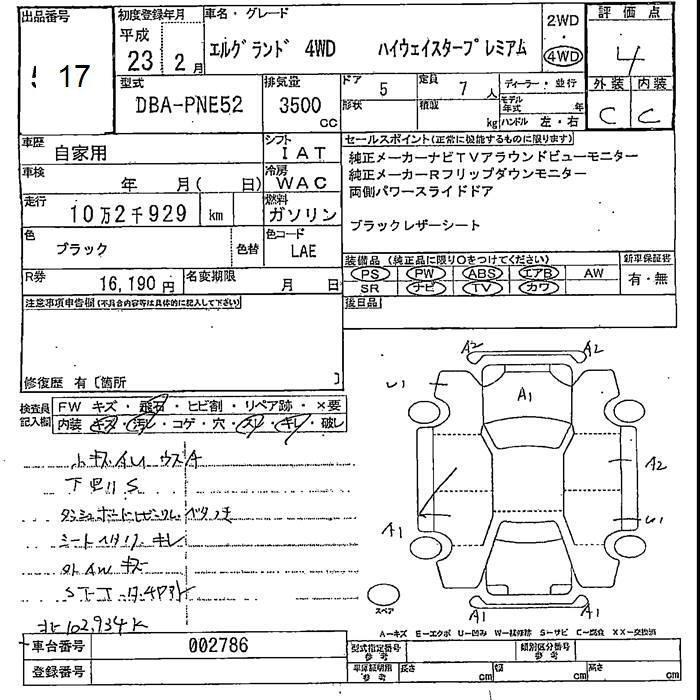 出品番号
17
初度登録年月
平成
23年2月
車名・グレード
エルグランド 4WD ハイウェイスタープレミアム
2WD
・
4WD
評価点
4
外装 内装
C C
型式
DBA-PNE52
排気量
3500
cc
ドア 5
定員 7 人
形状
積載 kg
ディーラー・並行
モデル年式 年
ハンドル 左・右
車歴
自家用
シフト
IAT
車検
年 月( 日)
冷房
WAC
走行
10万2千929 km
燃料
ガソリン
色
ブラック
色替
色コード
LAE
R券
16,190円
名変期限
月 日
セールスポイント(正常に機能するものに限ります)
純正メーカーナビTVアラウンドビューモニター
純正メーカーRフリップダウンモニター
両側パワースライドドア
ブラックレザーシート
装備品 (純正品に限り○をつけてください)
PS PW ABS エアB AW
SR ナビ TV カワ
新車保証書
有・無
後日品
注意事項申告欄(不具合内容等は具体的に記入して下さい)
修復歴 有〔箇所 〕
検査員
記入欄
FW キズ・飛石・ヒビ割・リペア跡・×要
内装 キズ・汚レ・コゲ・穴・スレ・キレ・破レ
下回りS
シートヘタリ キレ
外AW キズ
102,934K
A2 A2
U1
A1
A2
A1
U1
スペア
A1 A1
A-キズ E-エクボ U-凹み W-補修跡 S-サビ C-腐食 XX-交換済
車台番号
002786
登録番号
型式指定番号
参考
類別区分番号
参考
車庫証明用
参考
長さ cm
幅 cm
高さ cm